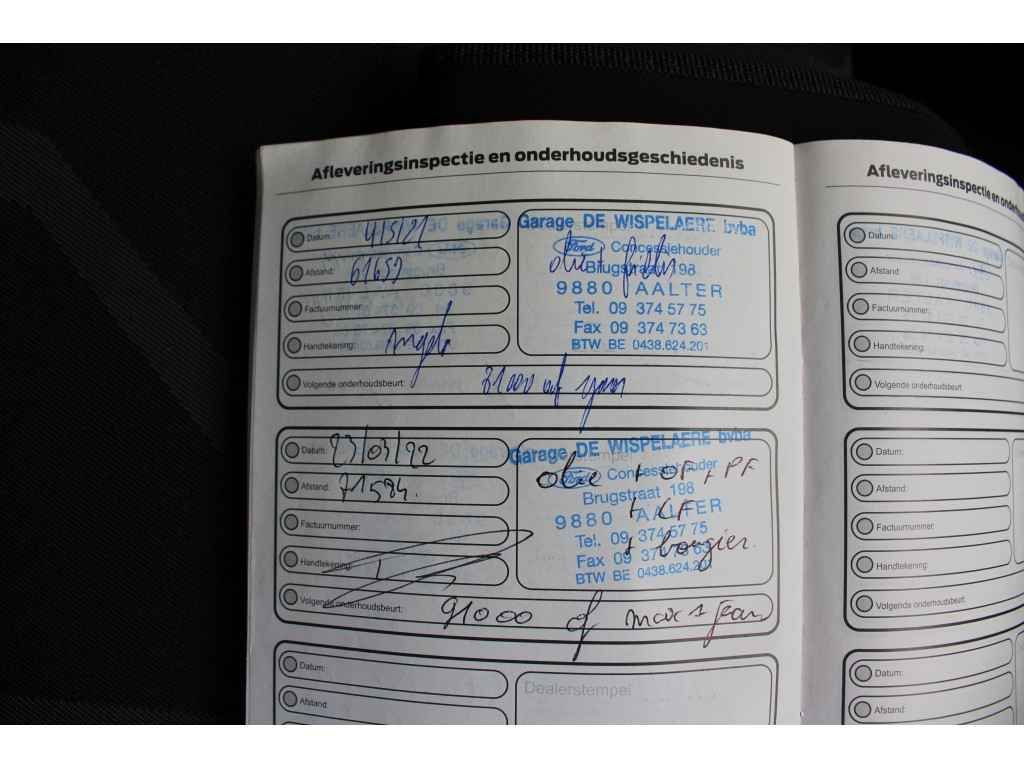 Afleveringsinspectie en onderhoudsgeschiedenis
Datum: 4/5/21
Afstand: 61652
Factuurnummer:
Handtekening:
Volgende onderhoudsbeurt: 81000 of
Garage DE WISPELAERE bvba
Ford Concessiehouder
Brugstraat 198
9880 AALTER
Tel. 09 374 57 75
Fax 09 374 73 63
BTW BE 0438.624.201
Datum: 23/03/22
Afstand: 71594.
Factuurnummer:
Handtekening:
Volgende onderhoudsbeurt: 91000 of max 1 jaar
Garage DE WISPELAERE bvba
Ford Concessiehouder
olie + OF + PF
Brugstraat 198
+ LF
9880 AALTER
Tel. 09 374 57 75
+ bougies.
Fax 09 374 73 63
BTW BE 0438.624.201
Datum:
Afstand:
Dealerstempel
Afleveringsinspectie en
Datum:
Afstand:
Factuurnummer:
Handtekening:
Volgende onderhoudsbeurt:
Datum:
Afstand:
Factuurnummer:
Handtekening:
Volgende onderhoudsbeurt:
Datum:
Afstand: